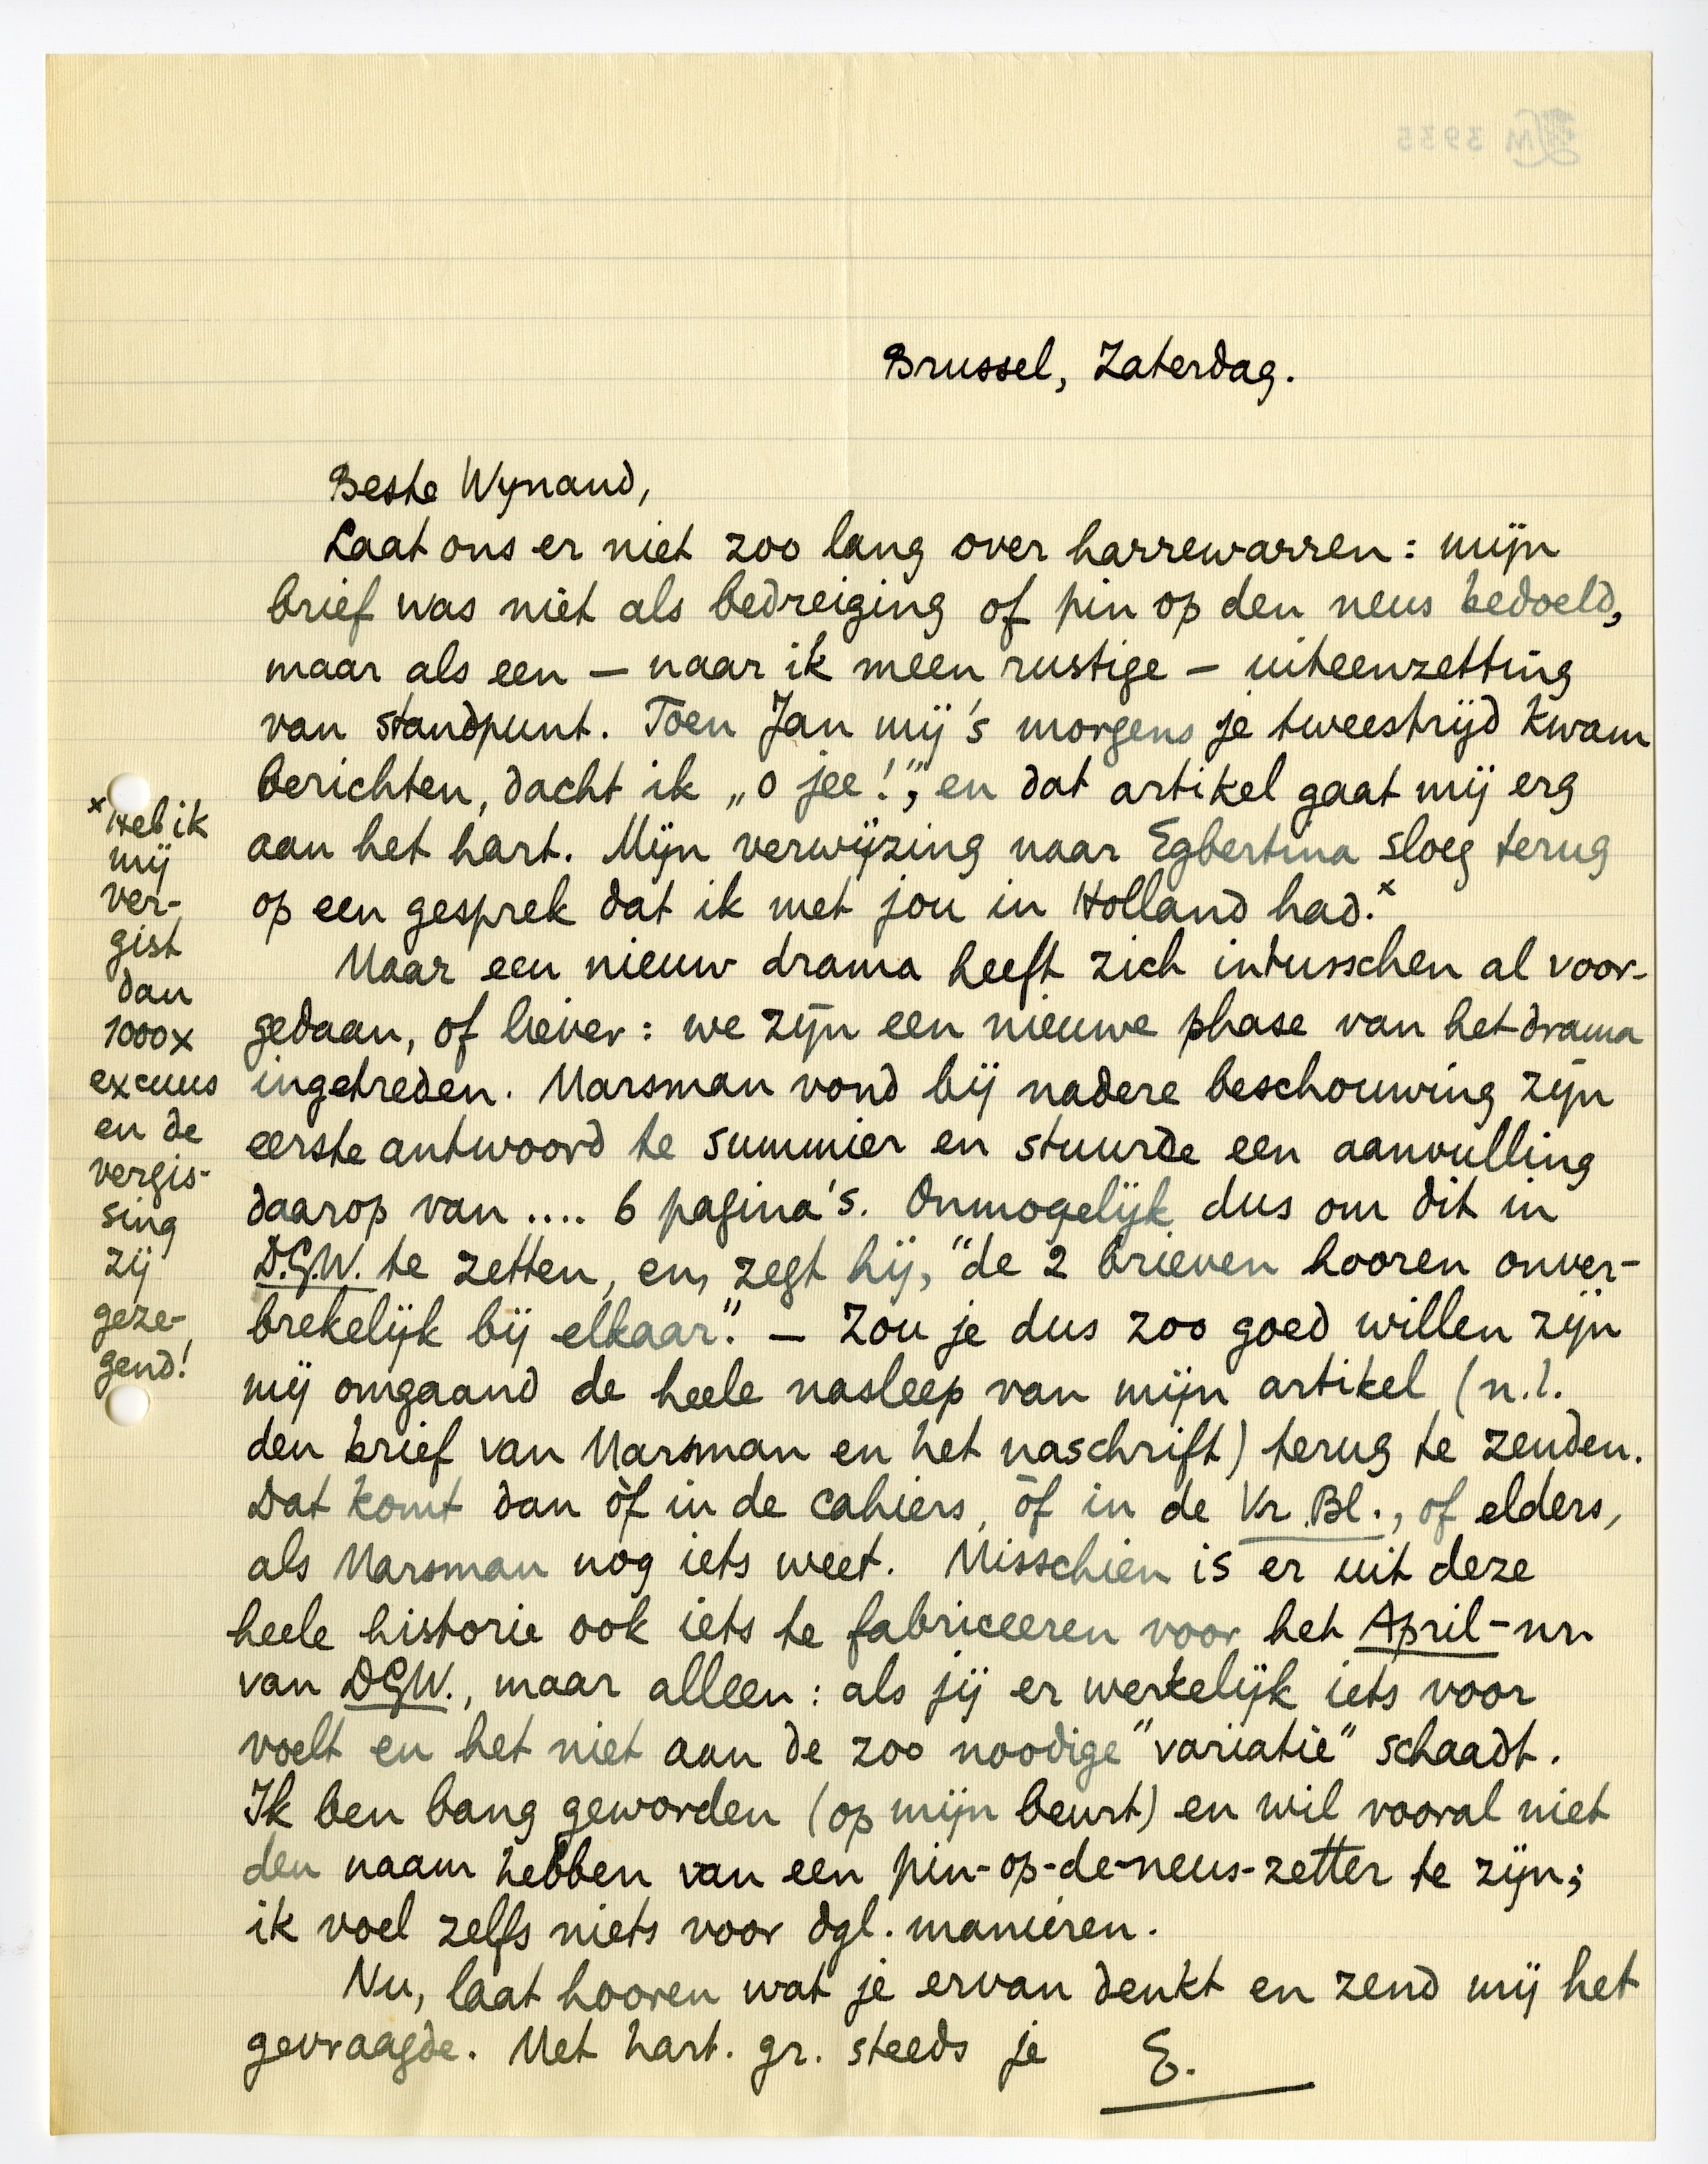 Brussel, Zaterdag.
Beste Wynand,
Laat ons er niet zoo lang over harrewarren: mijn
brief was niet als bedreiging of pin op den neus bedoeld,
maar als een — naar ik meen rustige — uiteenzetting
van standpunt. Toen Jan mij 's morgens je tweestrijd kwam
berichten, dacht ik „o jee!”, en dat artikel gaat mij erg
aan het hart. Mijn verwijzing naar Egbertina sloeg terug
op een gesprek dat ik met jou in Holland had.ˣ
Maar een nieuw drama heeft zich intusschen al voor-
gedaan, of liever: we zijn een nieuwe phase van het drama
ingetreden. Marsman vond bij nadere beschouwing zijn
eerste antwoord te summier en stuurde een aanvulling
daarop van .... 6 pagina's. Onmogelijk dus om dit in
D.G.W. te zetten, en, zegt hij, “de 2 brieven hooren onver-
brekelijk bij elkaar.” — Zou je dus zoo goed willen zijn
mij omgaand de heele nasleep van mijn artikel (n.l.
den brief van Marsman en het naschrift) terug te zenden.
Dat komt dan òf in de cahiers, òf in de Vr. Bl., of elders,
als Marsman nog iets weet. Misschien is er uit deze
heele historie ook iets te fabriceeren voor het April-nr.
van DGW., maar alleen: als jij er werkelijk iets voor
voelt en het niet aan de zoo noodige “variatie” schaadt.
Ik ben bang geworden (op mijn beurt) en wil vooral niet
den naam hebben van een pin-op-de-neus-zetter te zijn;
ik voel zelfs niets voor dgl. manieren.
Nu, laat hooren wat je ervan denkt en zend mij het
gevraagde. Met hart. gr. steeds je E.
ˣ Heb ik
mij
ver-
gist
dan
1000x
excuus
en de
vergis-
sing
zij
geze-
gend!
LM 3935